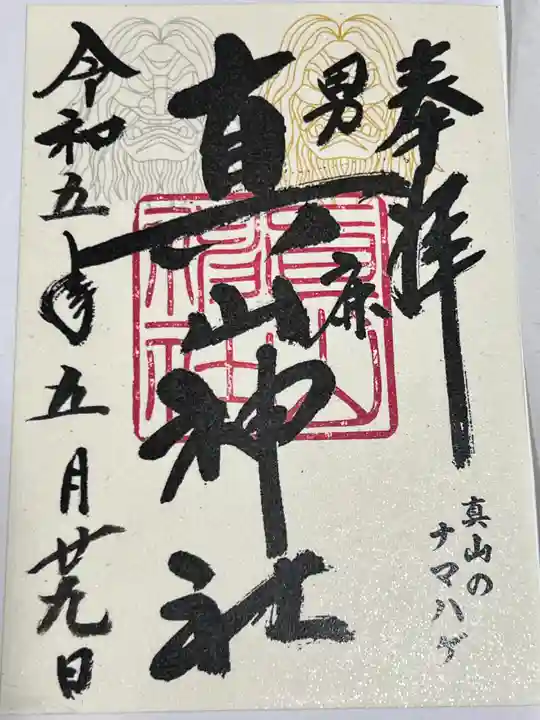 奉拝
男鹿
真山神社
令和五年五月廿九日
真山の
ナマハゲ
真山神社